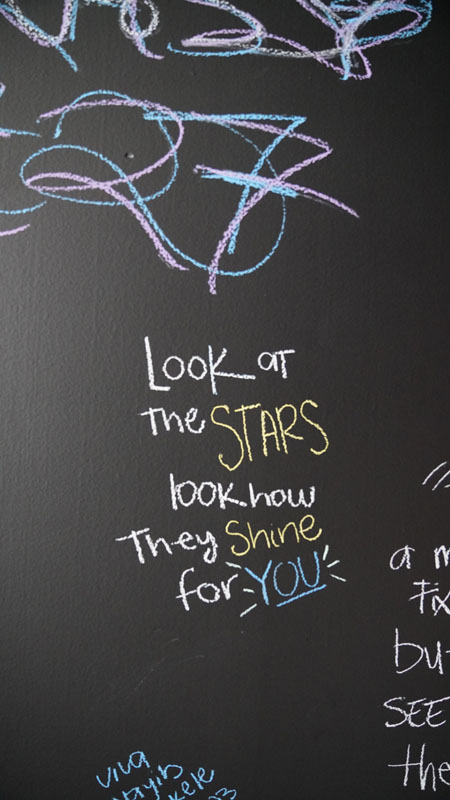 27
Look at
the STARS
look how
They Shine
for YOU
a m
fix
but
SEE
the
viva